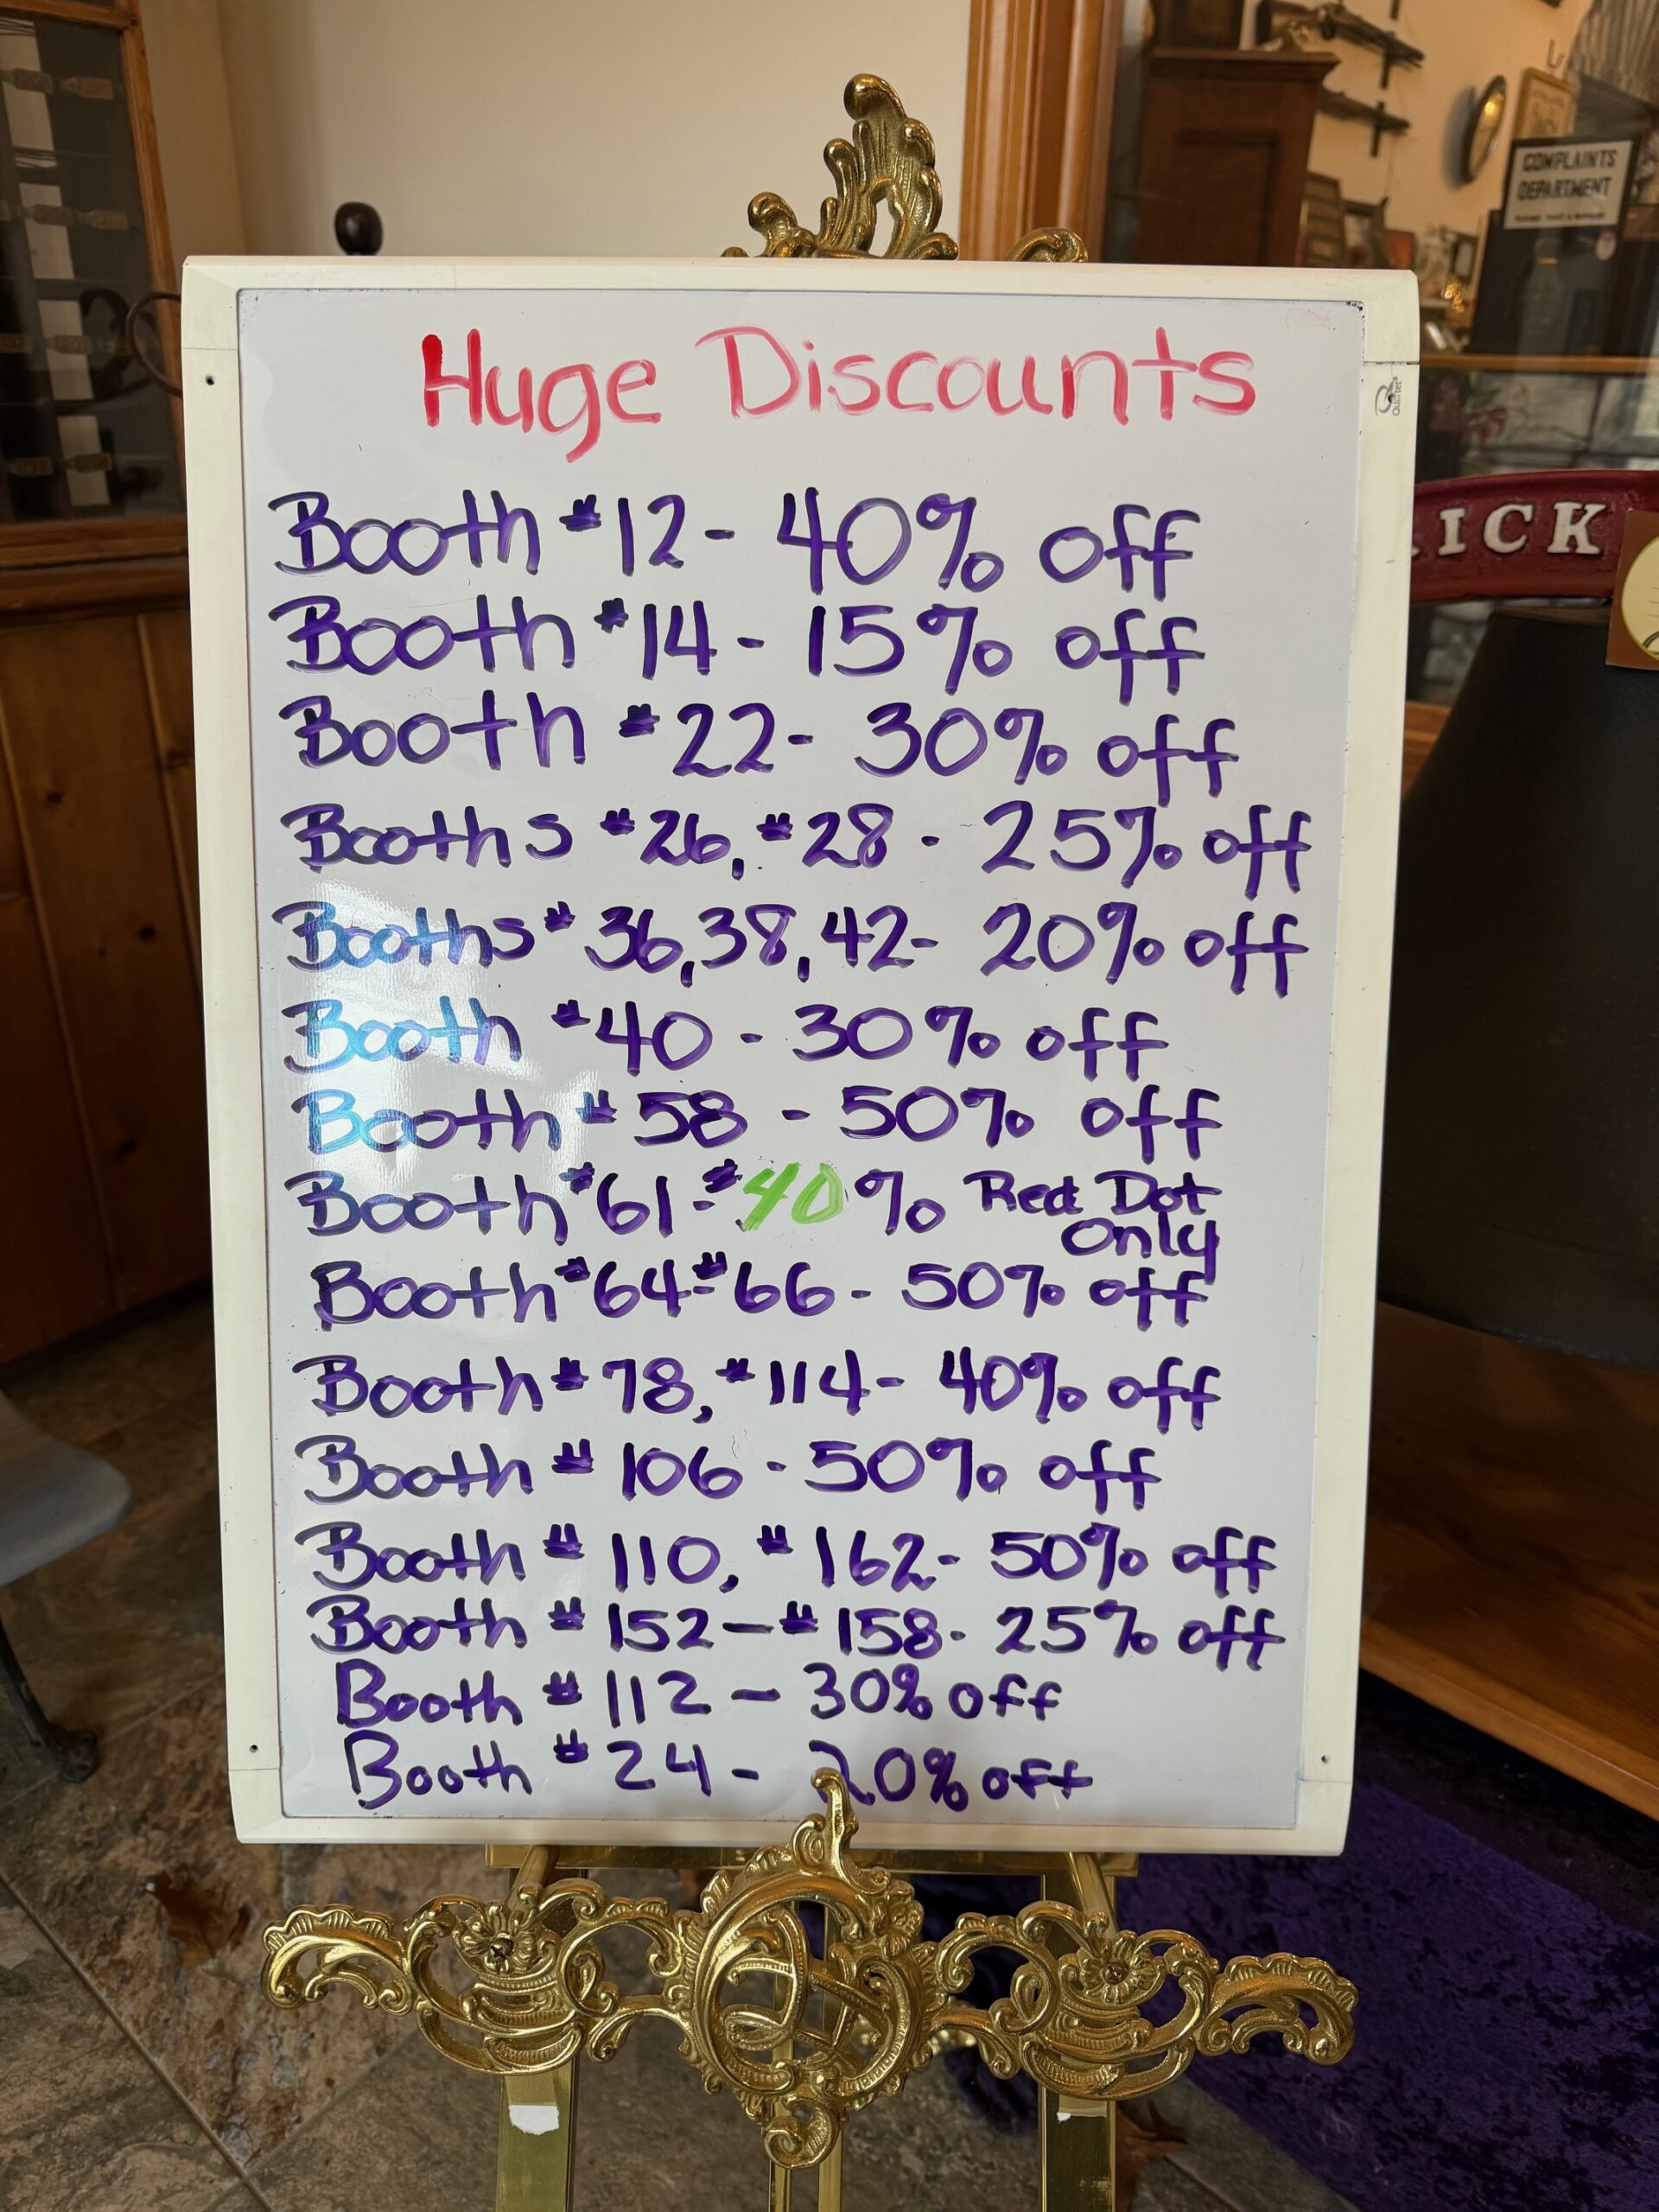 COMPLAINTS
DEPARTMENT
Huge Discounts
Quartet
ICK
Booth #12 - 40% off
Booth #14 - 15% off
Booth #22 - 30% off
Booths #26, #28 - 25% off
Booths # 36, 38, 42 - 20% off
Booth #40 - 30% off
Booth # 58 - 50% off
Booth #61 - # 40 % Red Dot
Only
Booth #64 - #66 - 50% off
Booth # 78, #114 - 40% off
Booth # 106 - 50% off
Booth # 110, # 162 - 50% off
Booth # 152 - # 158 - 25% off
Booth # 112 - 30% off
Booth # 24 - 20% off